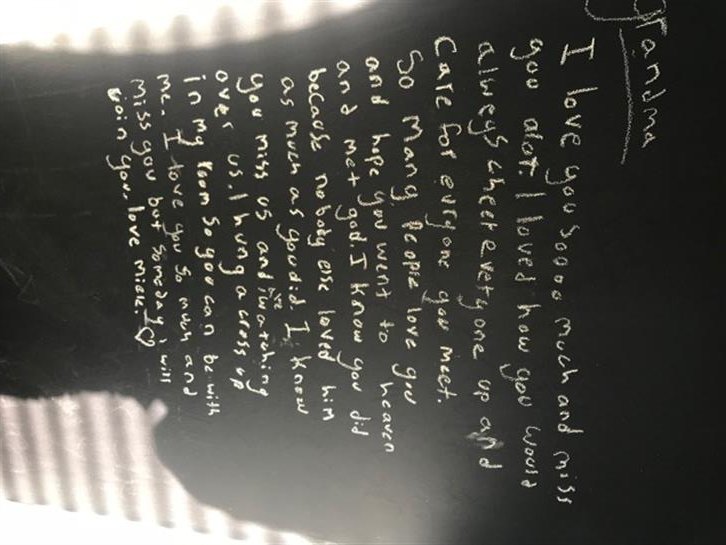 grandma
I love you soooo much and miss
you alot. I loved how you would
always cheer everyone up and
Care for everyone you meet.
So many people love you
and hope you went to heaven
and met god I know you did
because nobody else loved him
as much as you did. I know
you miss us and are watching
over us. I hung a cross up
in my room so you can be with
me. I love you so much and
miss you but someday i will
join you. love